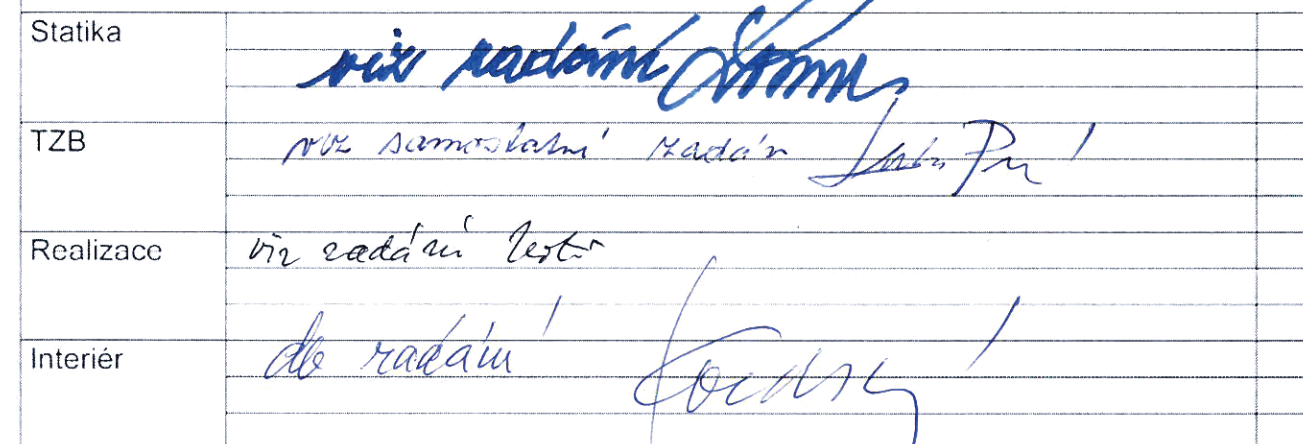 Statika viz zadání
TZB viz samostatní zadán
Realizace viz zadání
Interiér dle zadání